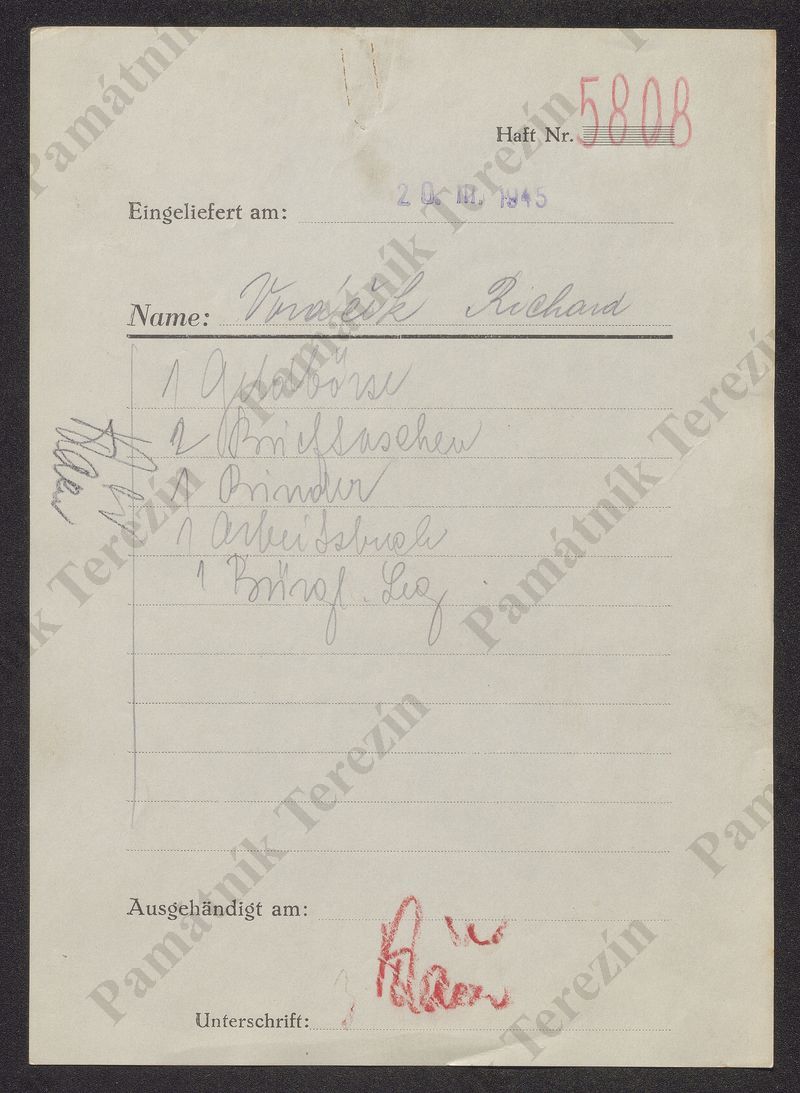 Haft Nr. 5808
Eingeliefert am: 20. III. 1945
Name: Voráček Richard
1 Geldbörse
2 Brieftaschen
1 Binder
1 Arbeitsbuch
1 Bürgl. Leg.
Ausgehändigt am:
Unterschrift:
Památník Terezín